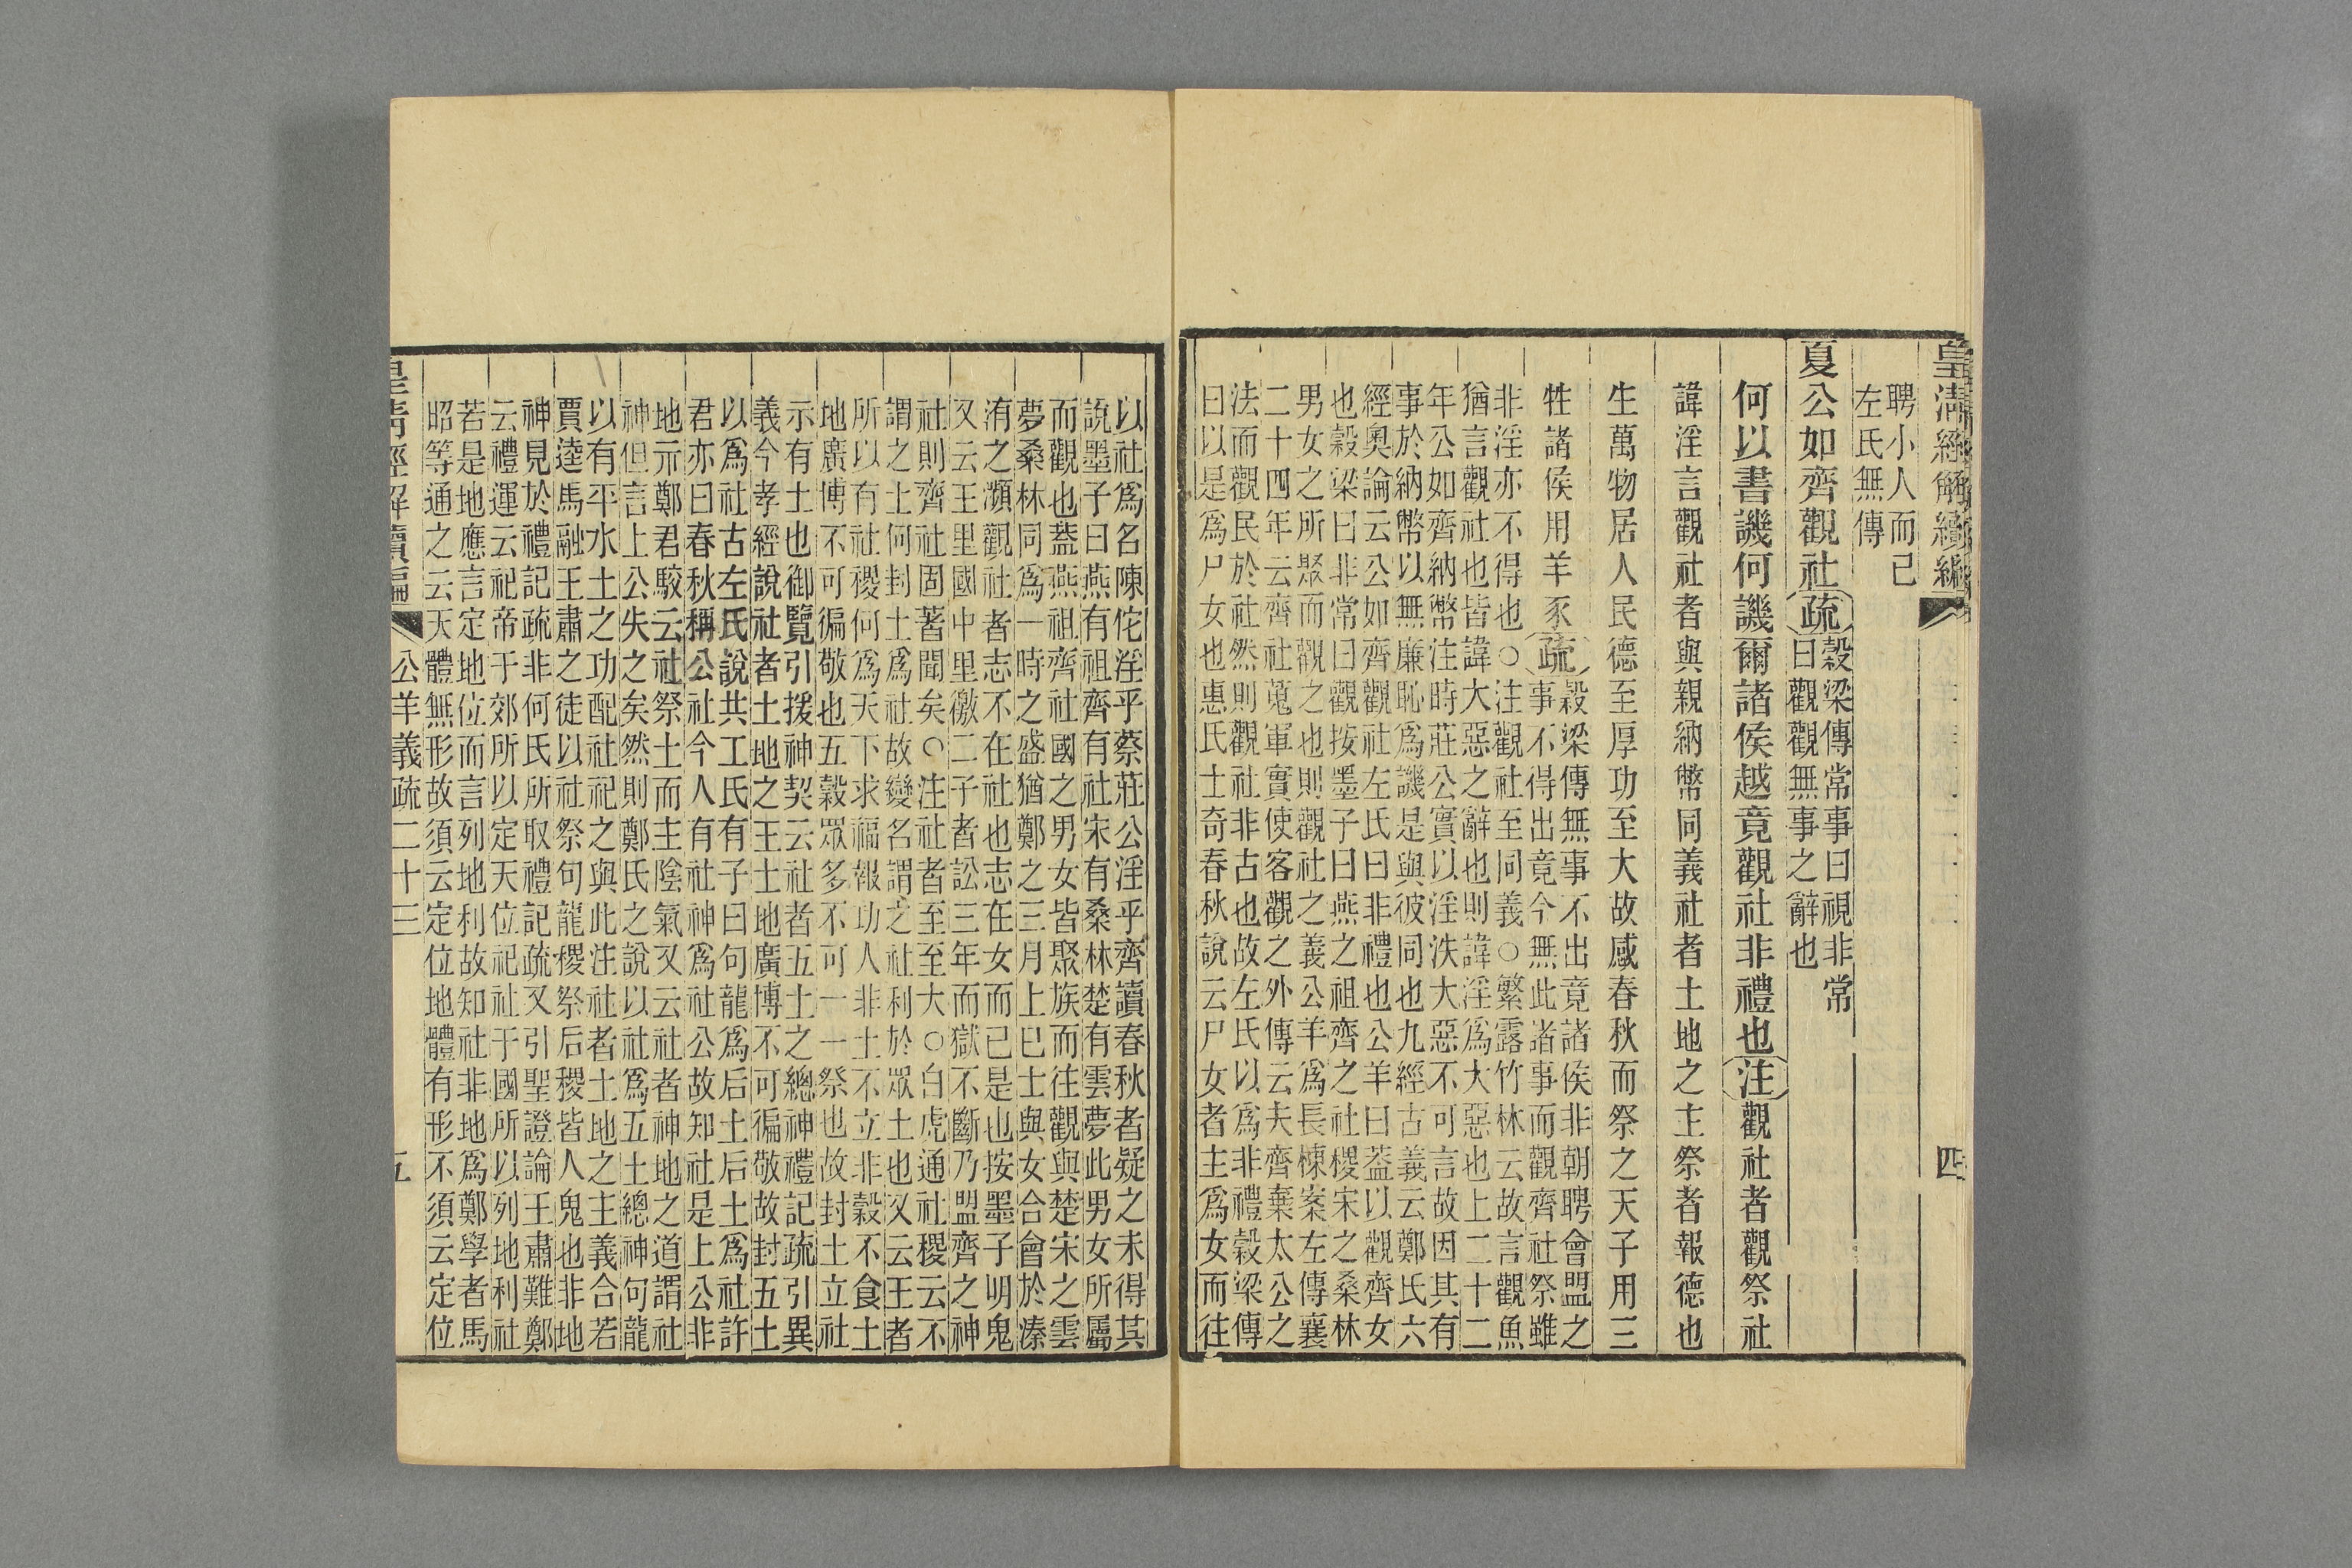 皇清經解續編
四
聘小人而已
左氏無傳
夏公如齊觀社疏穀梁傳常事曰視非常
曰觀觀無事之辭也
何以書譏何譏爾諸侯越竟觀社非禮也注觀社者觀祭社
諱淫言觀社者與親納幣同義社者土地之主祭者報德也
生萬物居人民德至厚功至大故感春秋而祭之天子用三
牲諸侯用羊豕疏穀梁傳無事不出竟諸侯非朝聘會盟之
事不得出竟今無此諸事而觀齊社祭雖
非淫亦不得也○注觀社至同義○繁露竹林云故言觀魚
猶言觀社也皆諱大惡之辭也則諱淫爲大惡也上二十二
年公如齊納幣注時莊公實以淫泆大惡不可言故因其有
事於納幣以無廉恥爲譏是與彼同也九經古義云鄭氏六
經奧論云公如齊觀社左氏曰非禮也公羊曰葢以觀齊女
也穀梁曰非常曰觀按墨子曰燕之祖齊之社稷宋之桑林
男女之所聚而觀之也則觀社之義公羊爲長棟案左傳襄
二十四年云齊社蒐軍實使客觀之外傳云夫齊棄太公之
法而觀民於社然則觀社非古也故左氏以爲非禮穀梁傳
曰以是爲尸女也惠氏士奇春秋說云尸女者主爲女而往
以社爲名陳佗淫乎蔡莊公淫乎齊讀春秋者疑之未得其
說墨子曰燕有祖齊有社宋有桑林楚有雲夢此男女所屬
而觀也蓋燕祖齊社國之男女皆聚族而往觀與楚宋之雲
夢桑林同爲一時之盛猶鄭之三月上巳士與女合會於溱
洧之瀕觀社者志不在社也志在女而已是也按墨子明鬼
又云王里國中里徼二子者訟三年而獄不斷乃盟齊之神
社則齊社固著聞矣○注社者至至大○白虎通社稷云不
謂之土何封土爲社故變名謂之社利於眾土也又云王者
所以有社稷何爲天下求福報功人非土不立非穀不食土
地廣博不可徧敬也五穀眾多不可一一祭也故封土立社
示有土也御覽引援神契云社者五土之總神禮記疏引異
義今孝經說社者土地之王土地廣博不可徧敬故封五土
以爲社古左氏說共工氏有子曰句龍爲后土后土爲社許
君亦曰春秋稱公社今人有社神爲社公故知社是上公非
地示鄭君駮云社祭土而主陰氣又云社者神地之道謂社
神但言上公失之矣然則鄭氏之說以社爲五土總神句龍
以有平水土之功配社祀之與此注社者土地之主義合若
賈逵馬融王肅之徒以社祭句龍稷祭后稷皆人鬼也非地
神見於禮記疏非何氏所取禮記疏又引聖證論王肅難鄭
云禮運云祀帝于郊所以定天位祀社于國所以列地利社
若是地應言定地位而言列地利故知社非地爲鄭學者馬
昭等通之云天體無形故須云定位地體有形不須云定位
皇清經解續編
公羊義疏二十三
五